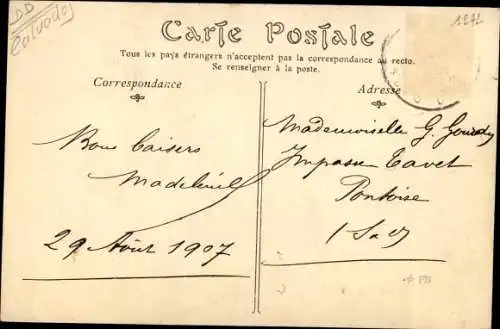 DD
Calvados
1272
Carte Postale
Tous les pays étrangers n'acceptent pas la correspondance au recto.
Se renseigner à la poste.
Correspondance
Bons baisers
29 Août 1907
Adresse
Mademoiselle G.
Impasse Tavet
Pontoise